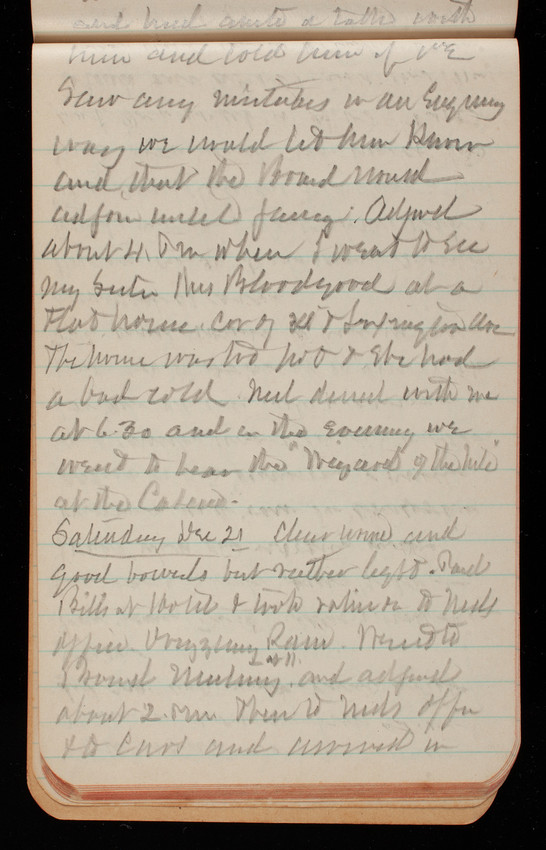 and had quite a talk with
him and told him if we
Saw any mistakes in an Engineering
way we would let him Know
and that the Board would
adjourn until Jany. Adjnd
about 4. P.m. when I went to See
my Sister Mrs Bloodgood at a
Flat house. Cor of & Lexington Ave
The house was too hot & She had
a bad cold Ned dined with me
at 6.30 and in the Evening we
went to hear the "Wizard of the Nile"
at the Casino.
Saturday Dec 21 Clear urine and
good bowels but rather light. Paid
Bills at Hotel & took valise to Neds
office. Drizzling Rain. Went to
Board Meeting at 11. and adjnd
about 2. P.m. then to Neds office
& to Cars and arrived in